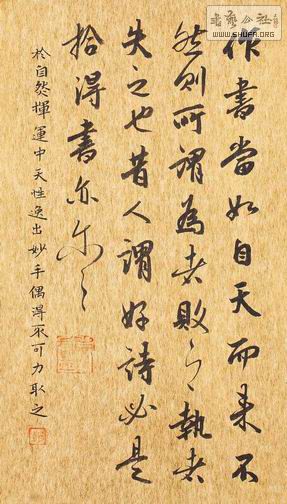 作書當如自天而来不
然則所謂為者敗之執者
失之也昔人謂好詩必是
拾得書亦尔々
於自然揮運中天性逸出妙手偶得不可力取之
書藝公社
WWW.SHUFA.ORG